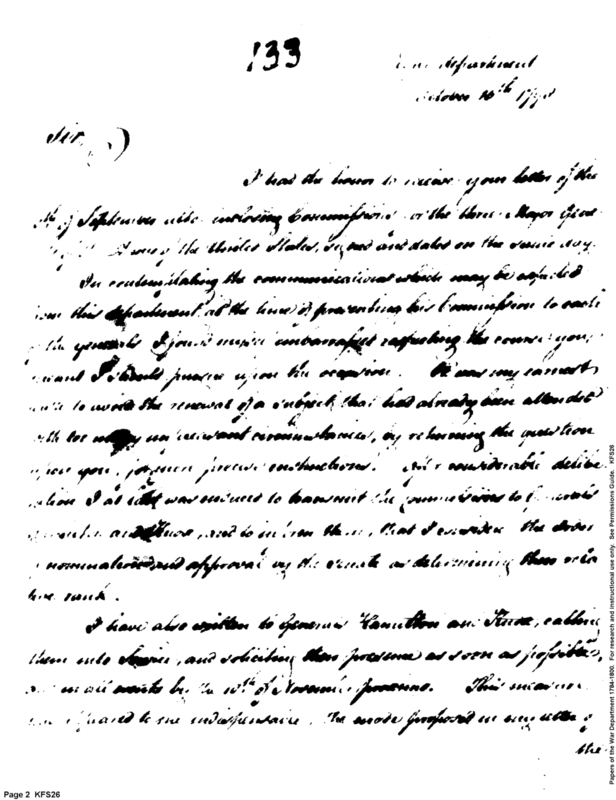 133
department
October 16th 1798
Sir,
I had the honor to receive your letter of the
of September inclosing Commissions the three Major Gene
of the United States, signed and dated on the same day.
In contemplating the communications which may be expected
this department at the time of presenting his Commission to each
the generals I found myself embarrassed respecting the course you
meant I should pursue upon the occasion. It was my earnest
to avoid the renewal of a subject that had already been attended
with too many circumstances, by returning the question
upon you, for precise instructions. After considerable delibe
ration I at last was induced to transmit the commissions to Generals
and Knox, and to inform them, that I consider the order
nomination and approval by the Senate as determining their rela
tive rank.
I have also written to Generals Hamilton and Knox, calling
them into Service, and soliciting their presence as soon as possible,
at all events by the 10th of November This measure
appeared to me indispensible. The mode proposed in my letter of
the
Page 2 KFS26
Papers of the War Department 1784-1800. For research and instructional use only. See Permissions Guide. KFS26